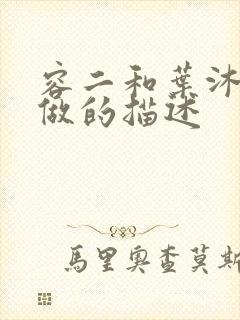 容二和葉沐
做的描述
馬里奧查莫斯